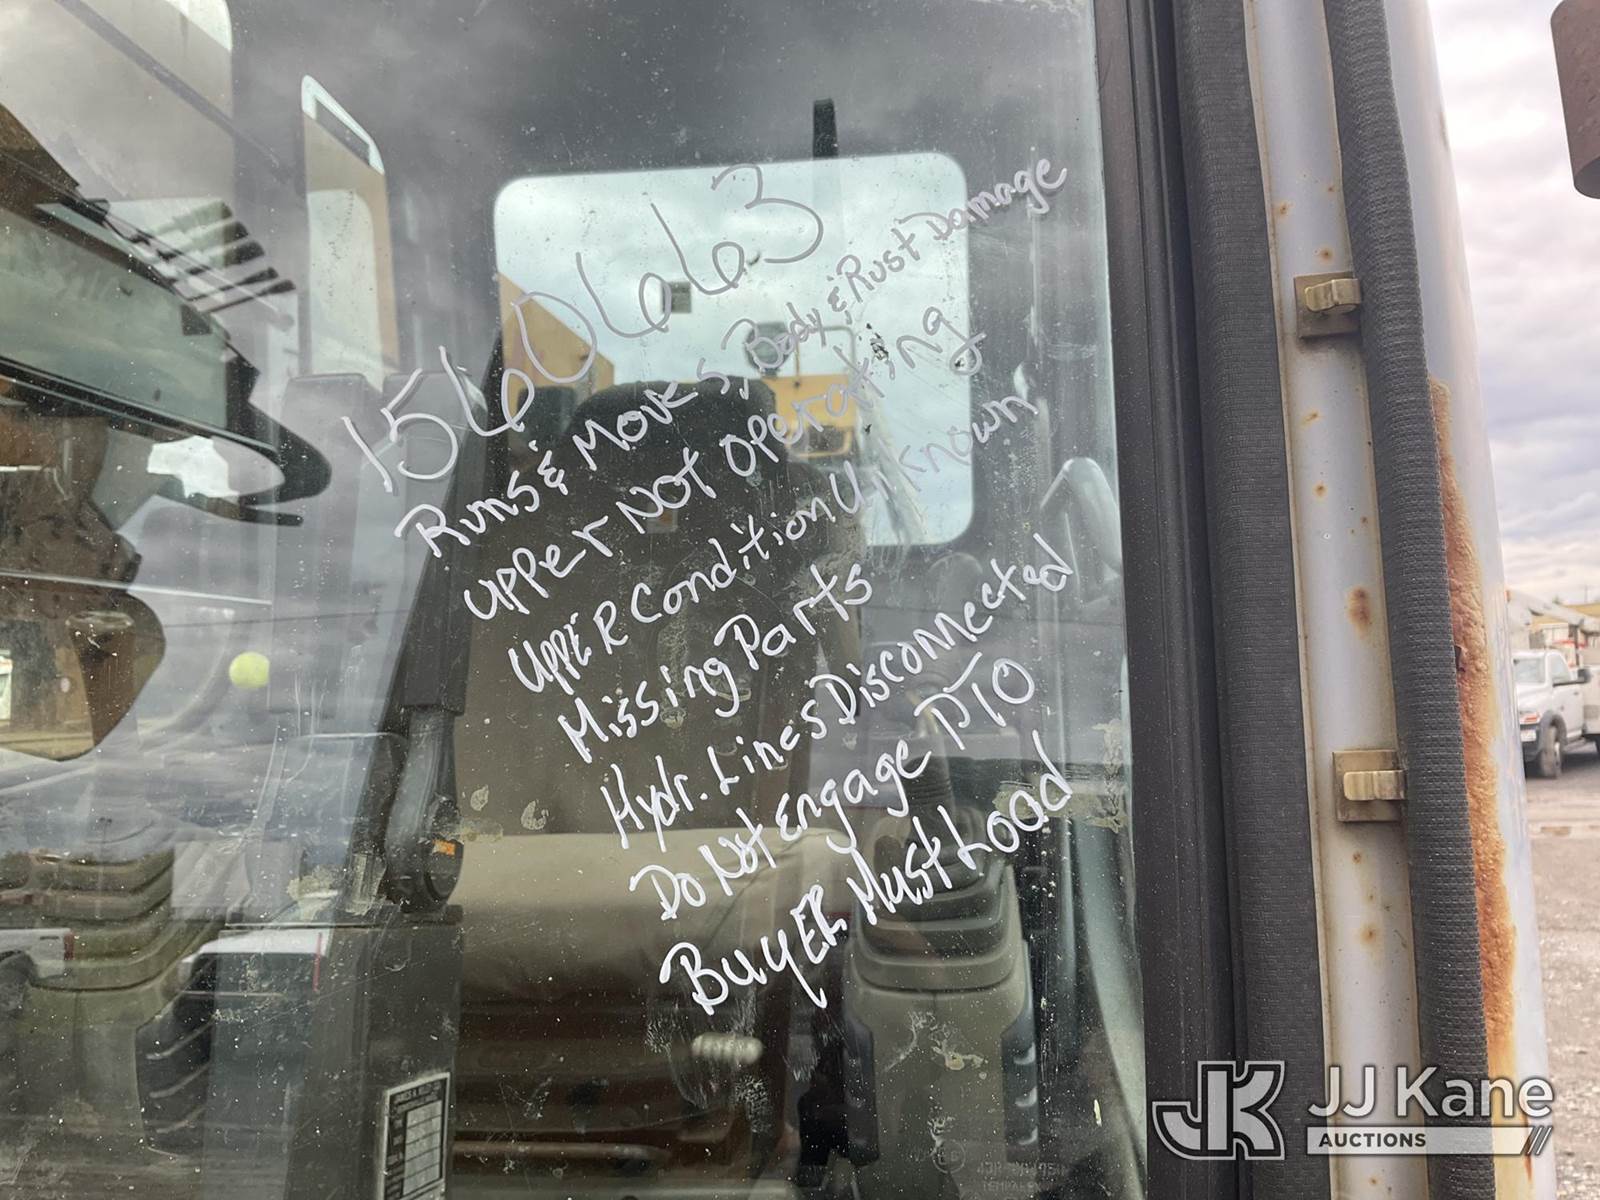 1560663
Runs & Moves, Body & Rust Damage
Upper Not Operating
Upper Condition Unknown
Missing Parts
Hydr. Lines Disconnected
Do Not Engage PTO
Buyer Must Load
JJ Kane
AUCTIONS